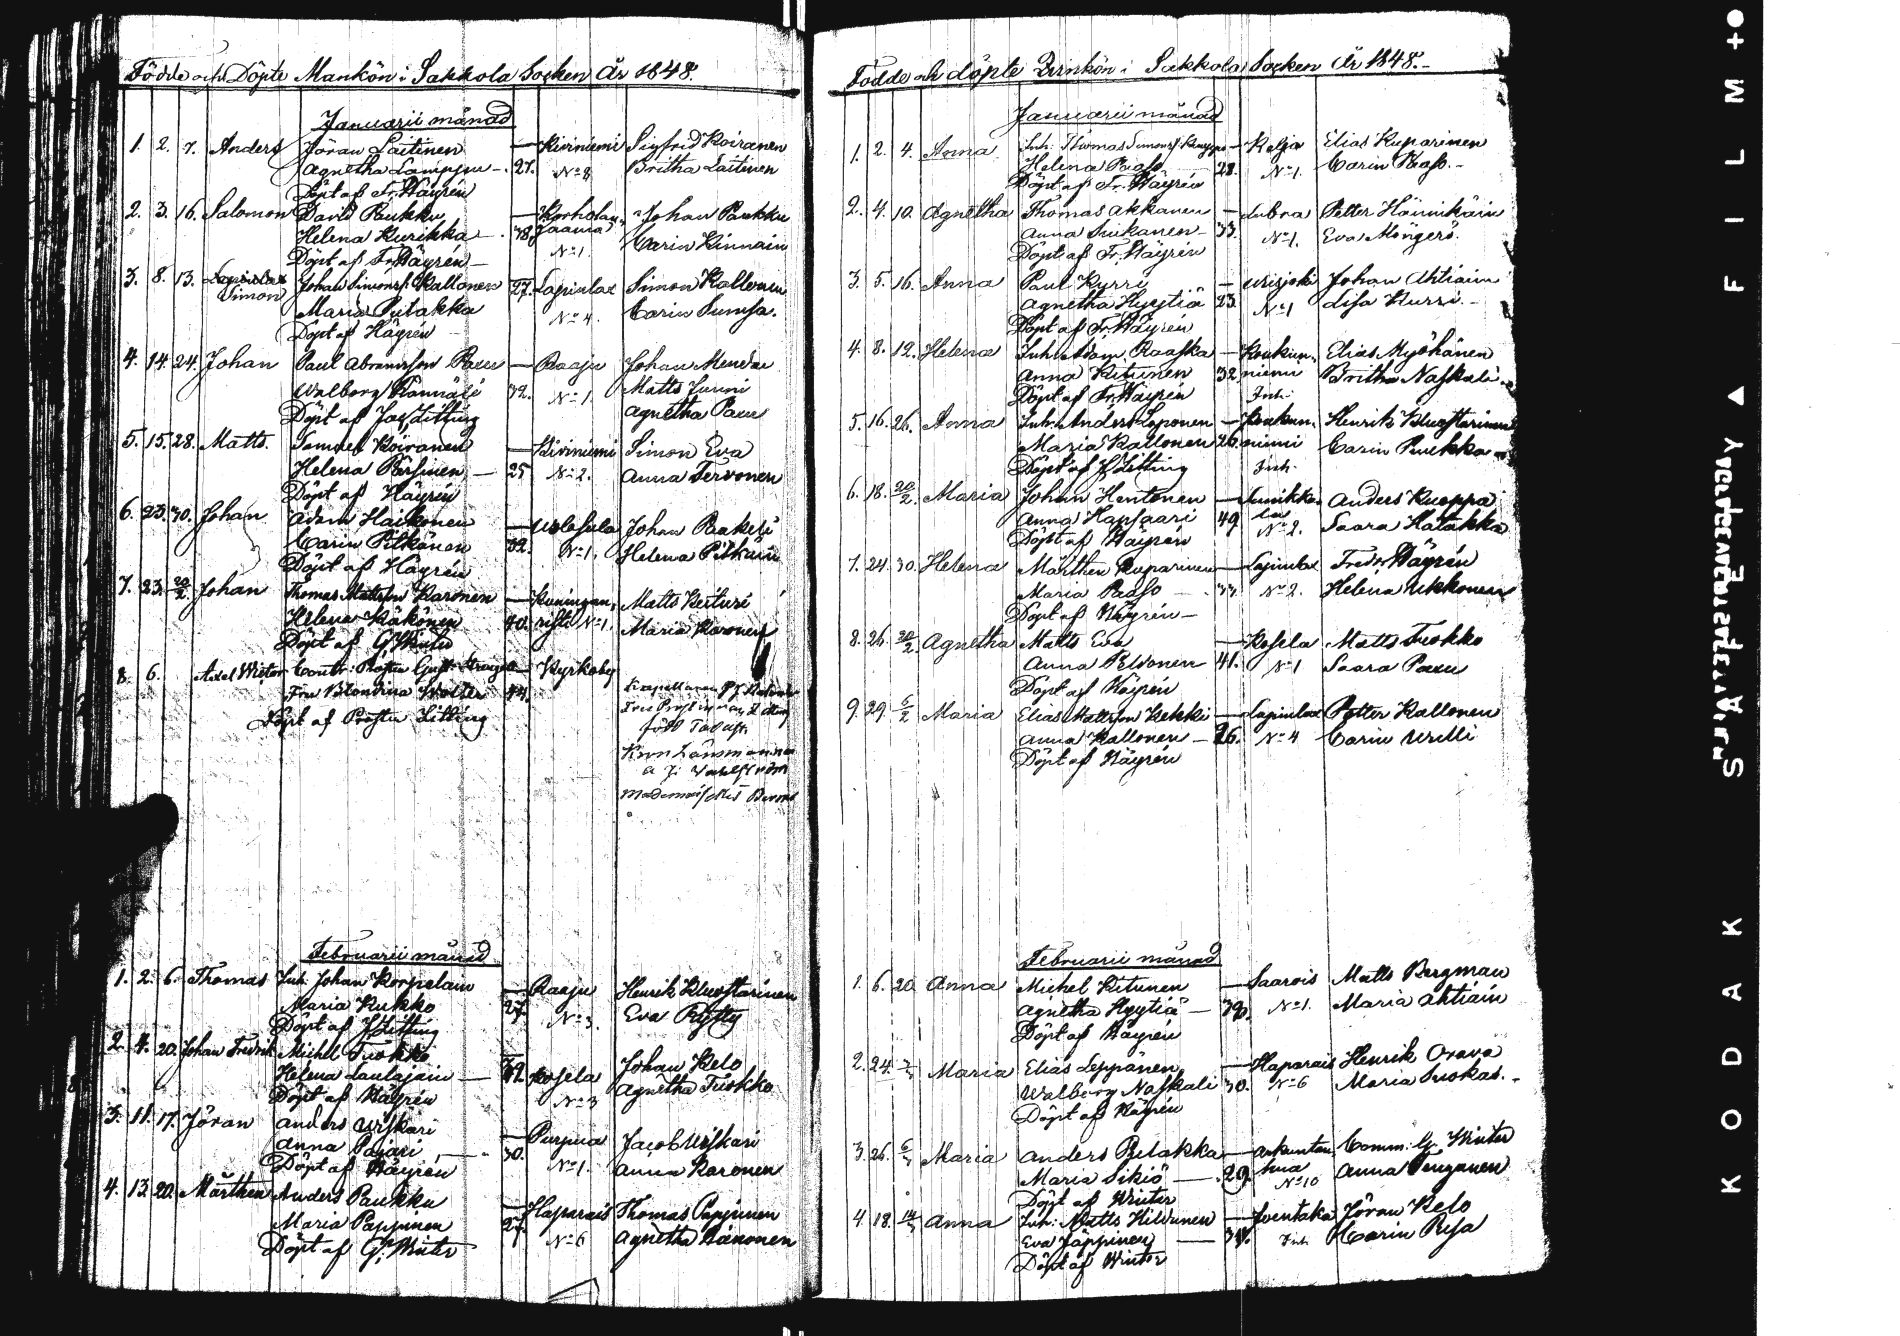 Födde och Döpte Mankön i Sakkola Socken År 1848.
Januarii månad
1. 2. 7. Anders Jöran Laitinen — Kiviniemi Sigfrid Koiranen
Agnetha Lamppu — 27. No 8 Britha Laitinen
Döpt af Fr. Häyrén
2. 3. 16. Salomon David Paukku — Korholan- Johan Paukku
Helena Kurikka — 38. jaama No 1. Carin Kinnain
Döpt af Fr. Häyrén
3. 8. 13. Simon Johan Simons. Kallonen 27. Lapinlax Simon Kallonen
Maria Putakka No 4. Carin Sumsa.
Döpt af Häyrén
4. 14. 24. Johan Paul Abramsson Paxu — Raaju Johan Mendu
Walborg 32. No 1. Matts Junni
Döpt af Jac. Litting Agnetha Paxu
5. 15. 28. Matts. Samuel Koiranen — Kiviniemi Simon Eva
Helena Pärsinen — 25 No 2. Anna Tervonen
Döpt af Häyrén
6. 23. 30. Johan Adam Haikonen — Johan
Carin Pitkänen 32. No 1. Helena Pitkäin
Döpt af Häyrén
7. 23. 20/2. Johan Thomas Mattsson Karonen — Kuningan- Matts Keituri
Helena Käkönen 40. risti No 1. Maria Karonen
Döpt af G. Winter
8. 6. Axel Victor Contr: Prosten Gust. — Kyrkoby
Fru Blondina Wolter 44.
Döpt af Prosten Litting
Februarii månad
1. 2. 6. Thomas Inh. Johan Korpelain — Raaju Henrik Kluostarinen
Maria Kukko 27. No 3. Eva Rytty
Döpt af J. Litting
2. 4. 20. Johan Fredrik Michel Tuokko Johan Kelo
Helena Laulajain — 32. Kosela No 3 Agnetha Tuokko
Döpt af Häyrén
3. 11. 17. Jöran Anders Uiskari — Purpua Jacob Uiskari
Anna Pajari — 30. No 1. Anna Karonen
Döpt af Häyrén
4. 13. 20. Mårthen Anders Paukku — Haparais Thomas Pappinen
Maria Pappinen 27. No 6 Agnetha Hänonen
Döpt af G. Winter
Födde och döpte Qvinkön i Sakkola Socken År 1848.
Januarii månad
1. 2. 4. Anna Inh. Thomas Simons. — Kelja Elias Kuparinen
Helena Paaso 28. No 1. Carin Paaso.
Döpt af Fr. Häyrén
2. 4. 10. Agnetha Thomas Akkanen — Lubra Petter Hännikäin
Anna Suikanen — 33. No 1. Eva Mängers.
Döpt af Fr. Häyrén
3. 5. 16. Anna Paul Kyrri — Urisjoki Johan Ahtiain
Agnetha Hyytiä 23. No 1 Lisa Kurri.
Döpt af Fr. Häyrén
4. 8. 12. Helena Inh. Adam Raaska — Koukun- Elias Myöhänen
Anna Kitunen 32. niemi Britha Naskali.
Döpt af Fr. Häyrén Inh.
5. 16. 26. Anna Inh. Anders Loponen — Koukun- Henrik Kluostarinen
Maria Kallonen 26. niemi Carin Puukka
Döpt af J. Litting Inh.
6. 18. 20/2. Maria Johan Hentonen — Sunikka- Anders Kuoppa
Anna Hapsaari 49 la No 2. Saara Katakka
Döpt af Häyrén
7. 24. 30. Helena Mårthen Kuparinen — Lapinlax Fredr. Häyrén
Maria Paaso — 33. No 2. Helena Ukkonen
Döpt af Häyrén —
8. 26. 20/2. Agnetha Matts Eva — Kosela Matts Tuokko
Anna Peldonen 41. No 1 Saara Paxu
Döpt af Häyrén
9. 29. 6/2 Maria Elias Mattsson Kekki — Lapinlax Petter Kallonen
Anna Kallonen — 26. No 4 Carin Urilli
Döpt af Häyrén
Februarii månad
1. 6. 20. Anna Michel Kitunen — Saarois Matts Bergman
Agnetha Hyytiä — 32. No 1. Maria Ahtiain
Döpt af Häyrén
2. 24. Maria Elias Leppänen — Haparais Henrik Orava
Walborg Naskali 30. No 6 Maria Suokas.
Döpt af Häyrén
3. 26. Maria Anders Putakka — Arkuntan- Comm: G. Winter
Maria Sikiö — 29. hua No 10 Anna Penganen
Döpt af Winter
4. 18. Anna Inh. Matts Hildunen — Joentaka Jöran Kelo
Eva Jäppinen — 34. Inh Carin Reja
Döpt af Winter
KODAK SAFETY ▲ FILM +●